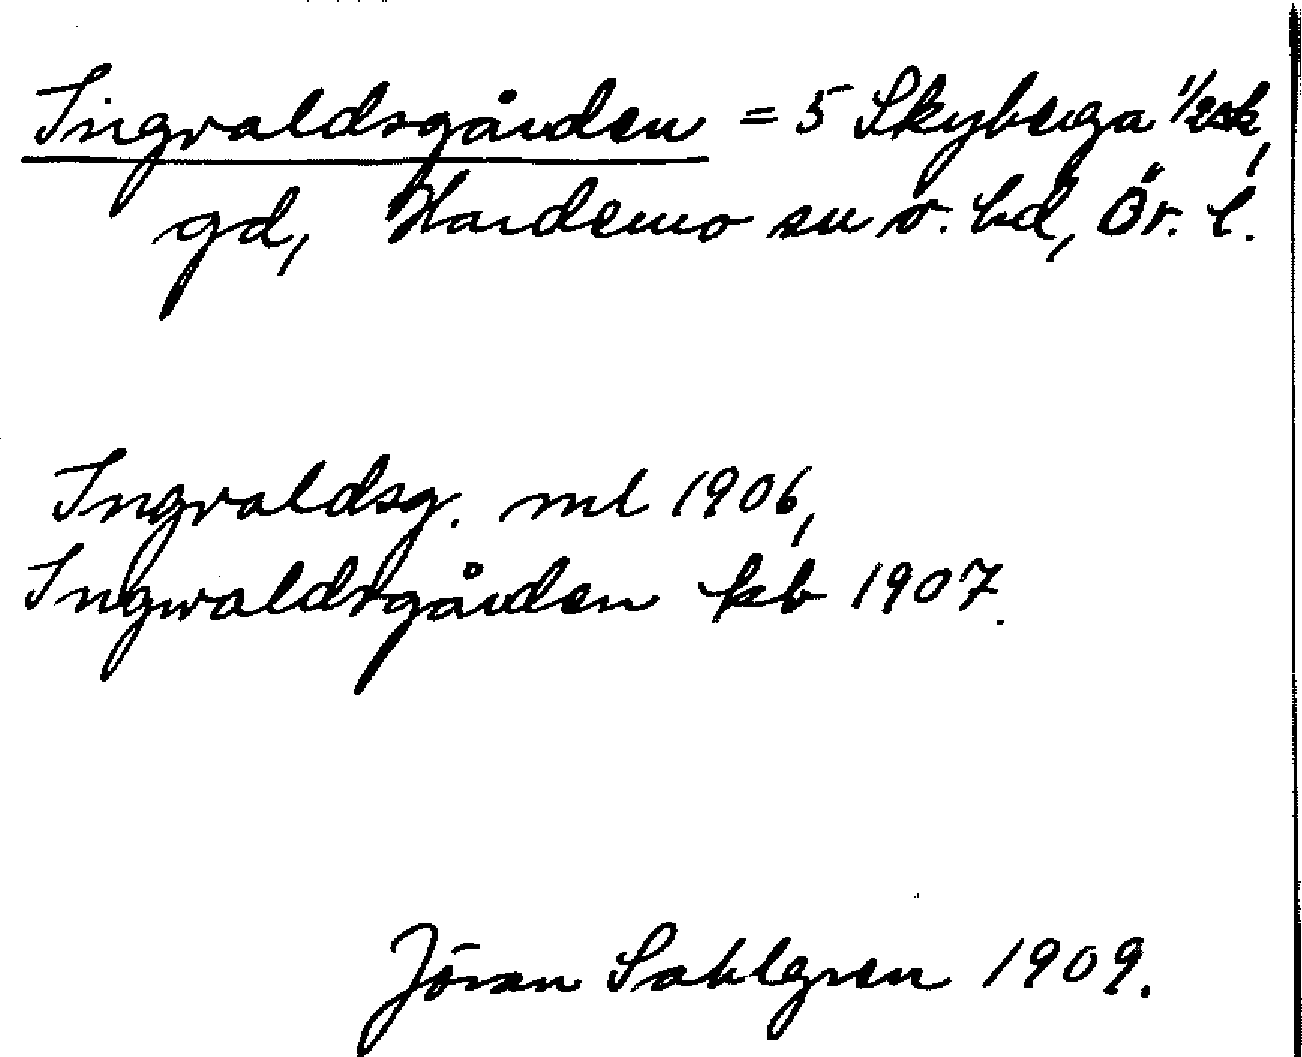 Ingvaldsgården = 5 Skyberga 1/2sk,
gd, Hardemo sn o. hd, Ör. l.
Ingvaldsg. ml 1906,
Ingwaldsgården kb 1907.
Jöran Sahlgren 1909.